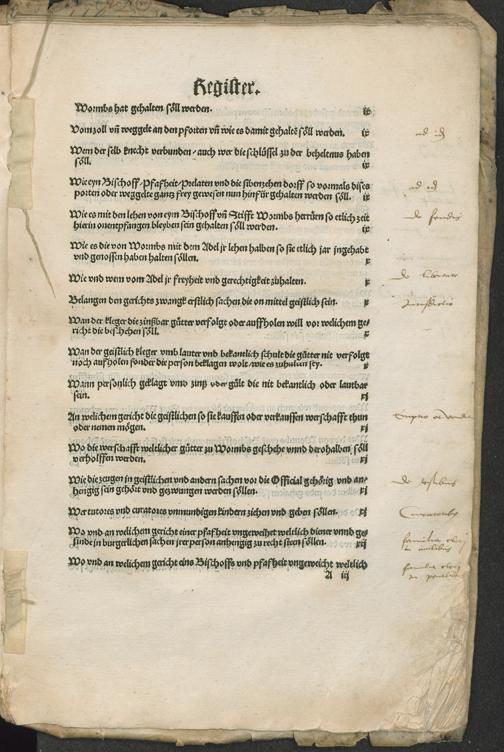 Register.
Wormbs hat gehalten söll werden. ix
Vom zoll vñ weggelt an den pforten vñ wie es damit gehaltē söll werden. ix
Wem der selb knecht verbunden, auch wer die schlüssel zu der beheltnus haben
söll. ix
Wie eyn Bischoff, Pfafheit, Prelaten vnd die sibenzehen dorff so vormals diser
porten oder weggelts gang frey gewesen nun hinfür gehalten werden söll. ix
Wie es mit den lehen von eym Bischoff vñ Stifft Wormbs herrürn so etlich zeit
hierin onentpfangen bleyben sein gehalten söll werden. ix
Wie es die von Wormbs mit dem Adel jr lehen halben so sie etlich jar inngehabt
vnd genossen haben halten söllen. x
Wie vnd wem vom Adel jr freyheit vnd gerechtigkeit zuhalten. x
Belangen den gerichts zwangk erstlich sachen die on mittel geistlich sein. x
Wan der kleger die zinßbar gütter verfolgt oder auffholen will vor welichem ge-
richt die beschehen söll. x
Wan der geistlich kleger vmb lauter vnd bekantlich schult die gütter nit verfolgt
noch aufholen sonder die person beklagen wolt, wie es zuhalten sey. x
Wann personlich geklagt vmb zinß oder gült die nit bekantlich oder lautbar
sein. xj
An welichem gericht die geistlichen so sie kauffen oder verkauffen werschafft thun
oder nemen mögen. xj
Wo die werschafft weltlicher gütter zu Wormbs geschehe vnnd derohalben söll
verholffen werden. xj
Wie die zeugen in geistlichen vnd andern sachen vor die Official gehörig vnd an-
hengig sein gehört vnd gezwungen werden söllen. xj
Wer tutores vnd curatores vnmundigen kindern ziehen vnd geben söllen. xj
Wo vnd an welichem gericht einer pfafheit vngeweihet weltlich diener vnnd ge-
sinde in burgerlichen sachen jrer person anhengig zu recht steen söllen. xij
Wo vnd an welichem gericht eins Bischoffs vnd pfafheit vngeweicht weltlich
A iij